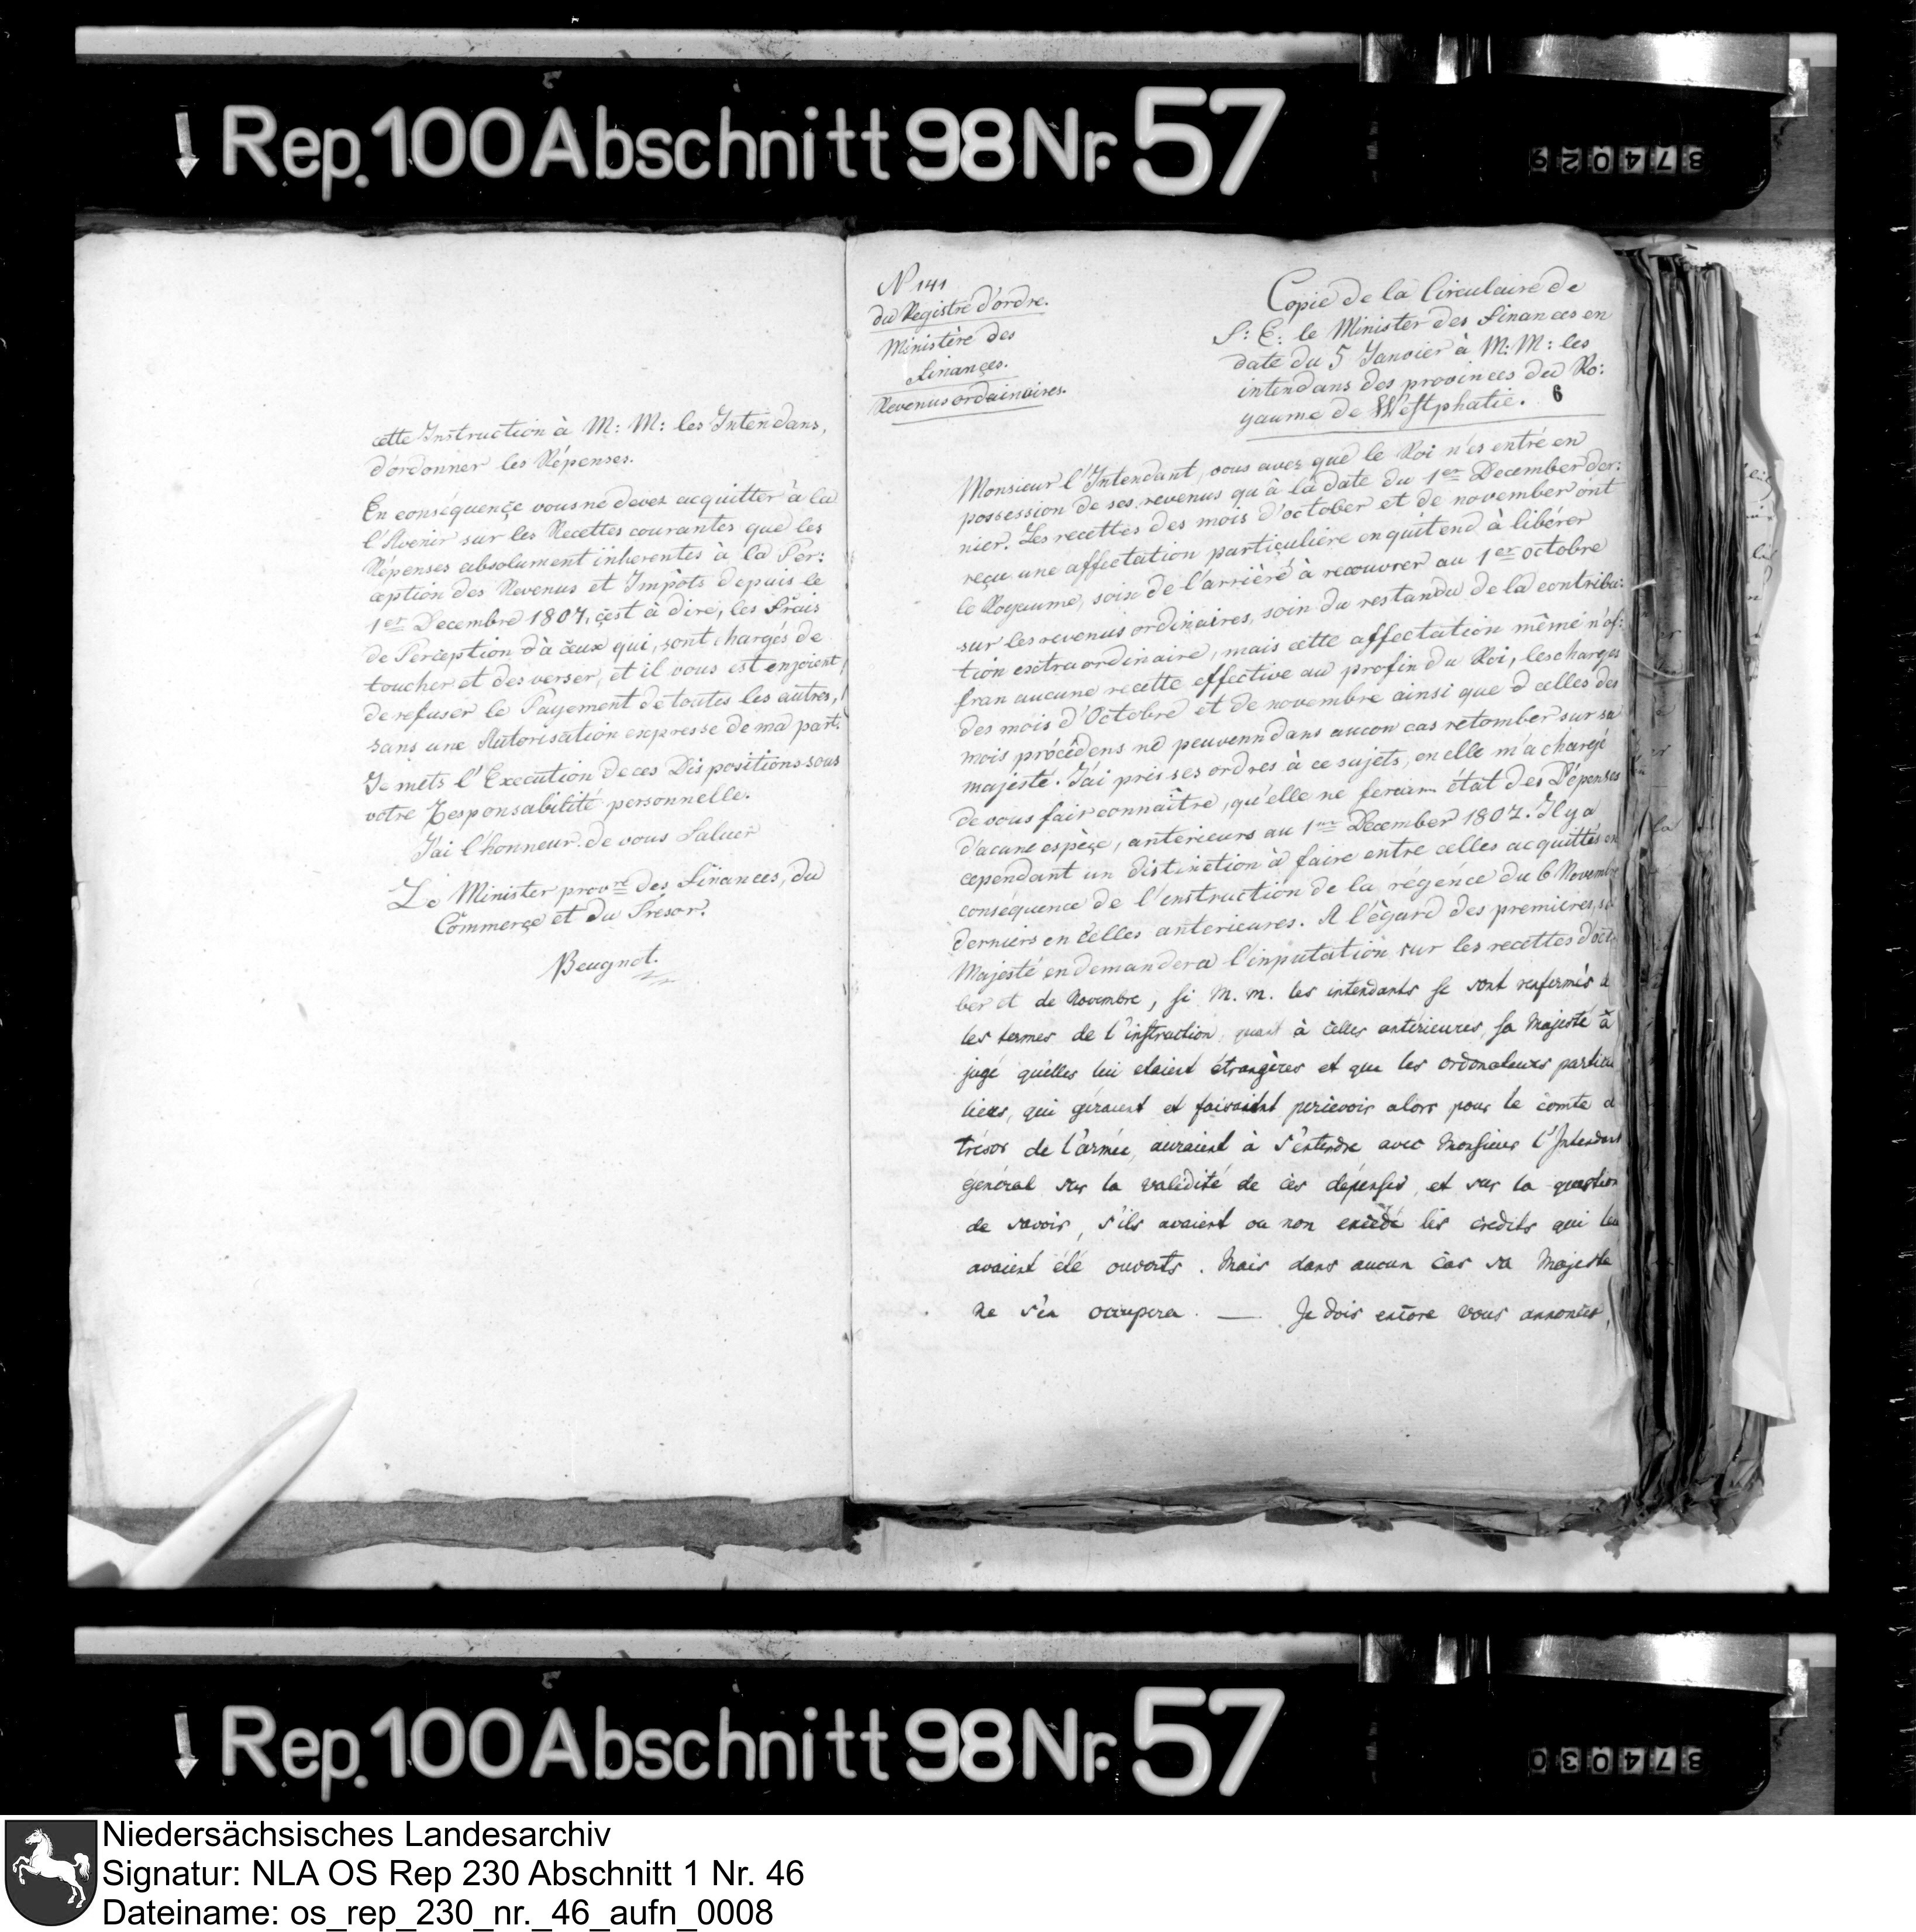 Rep. 100 Abschnitt 98 Nr. 57
874029
cette Instruction à M: M: les Intendans,
d'ordonner les Dépenses.
En conséquençe vous ne devez acquitter à la
l'Avenir sur les Recettes courantes que les
Dépenses absolument inherentes à la Per:
ception des Revenus et Impôts depuis le
1er Decembre 1807, çest à dire, les Frais
de Perception d'à çeux qui, sont chargés de
toucher et des verser, et il vous est enjoient,
de refuser le Payement de toutes les autres,
sans une Autorisation expresse de ma part.
Je mets l'Execution de ces Dispositions sous
votre Responsabilité personnelle.
J'ai l'honneur de vous Saluer
Le Minister provre des Finances, du
Commerçe et du Tresor.
Beugnot.
N 141
du Registre d'ordre.
Ministère des
Finançes.
Revenus ordainaires.
Copie de la Circulaire de
S: E: le Minister des Finances en
date du 5 Janvier à M: M: les
intendans des provinces du Ro:
yaume de Westphalie. 6
Monsieur l'Intendant, vous avez que le Roi n'es entré en
possession de ses revenus qu'à la date du 1er December der:
nier. Les recettes des mois d'october et de november ont
reçu une affectation particulière en quit end à libérer
le Royaume, soin de l'arrièré à recouvrer au 1er octobre
sur les revenus ordinaires, soin du restandu de la contribu:
tion exstraordinaire, mais cette affectation même n'of:
fran aucune recette effective au profin du Roi, les charges
des mois d'Octobre et de novembre ainsi que d celles des
mois prócédens ne peuvenn dans aucon cas retomber sur sa
majesté. J'ai pris ses ordres à ce sujets, en elle m'a chargé
de vous fair connaître, qu'elle ne feraim état des Dépenses
d'acune espèçe, anterieurs au 1er December 1807. Il y a
cependant un distinction à faire entre celles acquittés en
conséquence de l'enstruction de la régénce du 6 Novembre
derniers en celles anterieures. A l'ègard des premieres, sa
Majesté en demandera l'inputation sur les recettes d'octo
ber et de Novembre, si M. m. les intendants se sont renfermés d
les termes de l'instruction, quant à celles antérieures, sa Majesté à
jugé qu'elles lui etaient étrangères et que les ordonateurs particu
liers, qui géraient et faisaient percevoir alors pour le comte d
trésor de l'armée, auraient à s'entendre avec Monsieur l'Intendant
général sur la validité de ces dépenses, et sur la question
de savoir, s'ils avaient ou non excédé les credits qui leu
avaient été ouverts. Mais dans aucun cas sa Majesté
ne s'en occupera. — Je dois encore vous annoncer,
Rep. 100 Abschnitt 98 Nr. 57
874030
Niedersächsisches Landesarchiv
Signatur: NLA OS Rep 230 Abschnitt 1 Nr. 46
Dateiname: os_rep_230_nr._46_aufn_0008